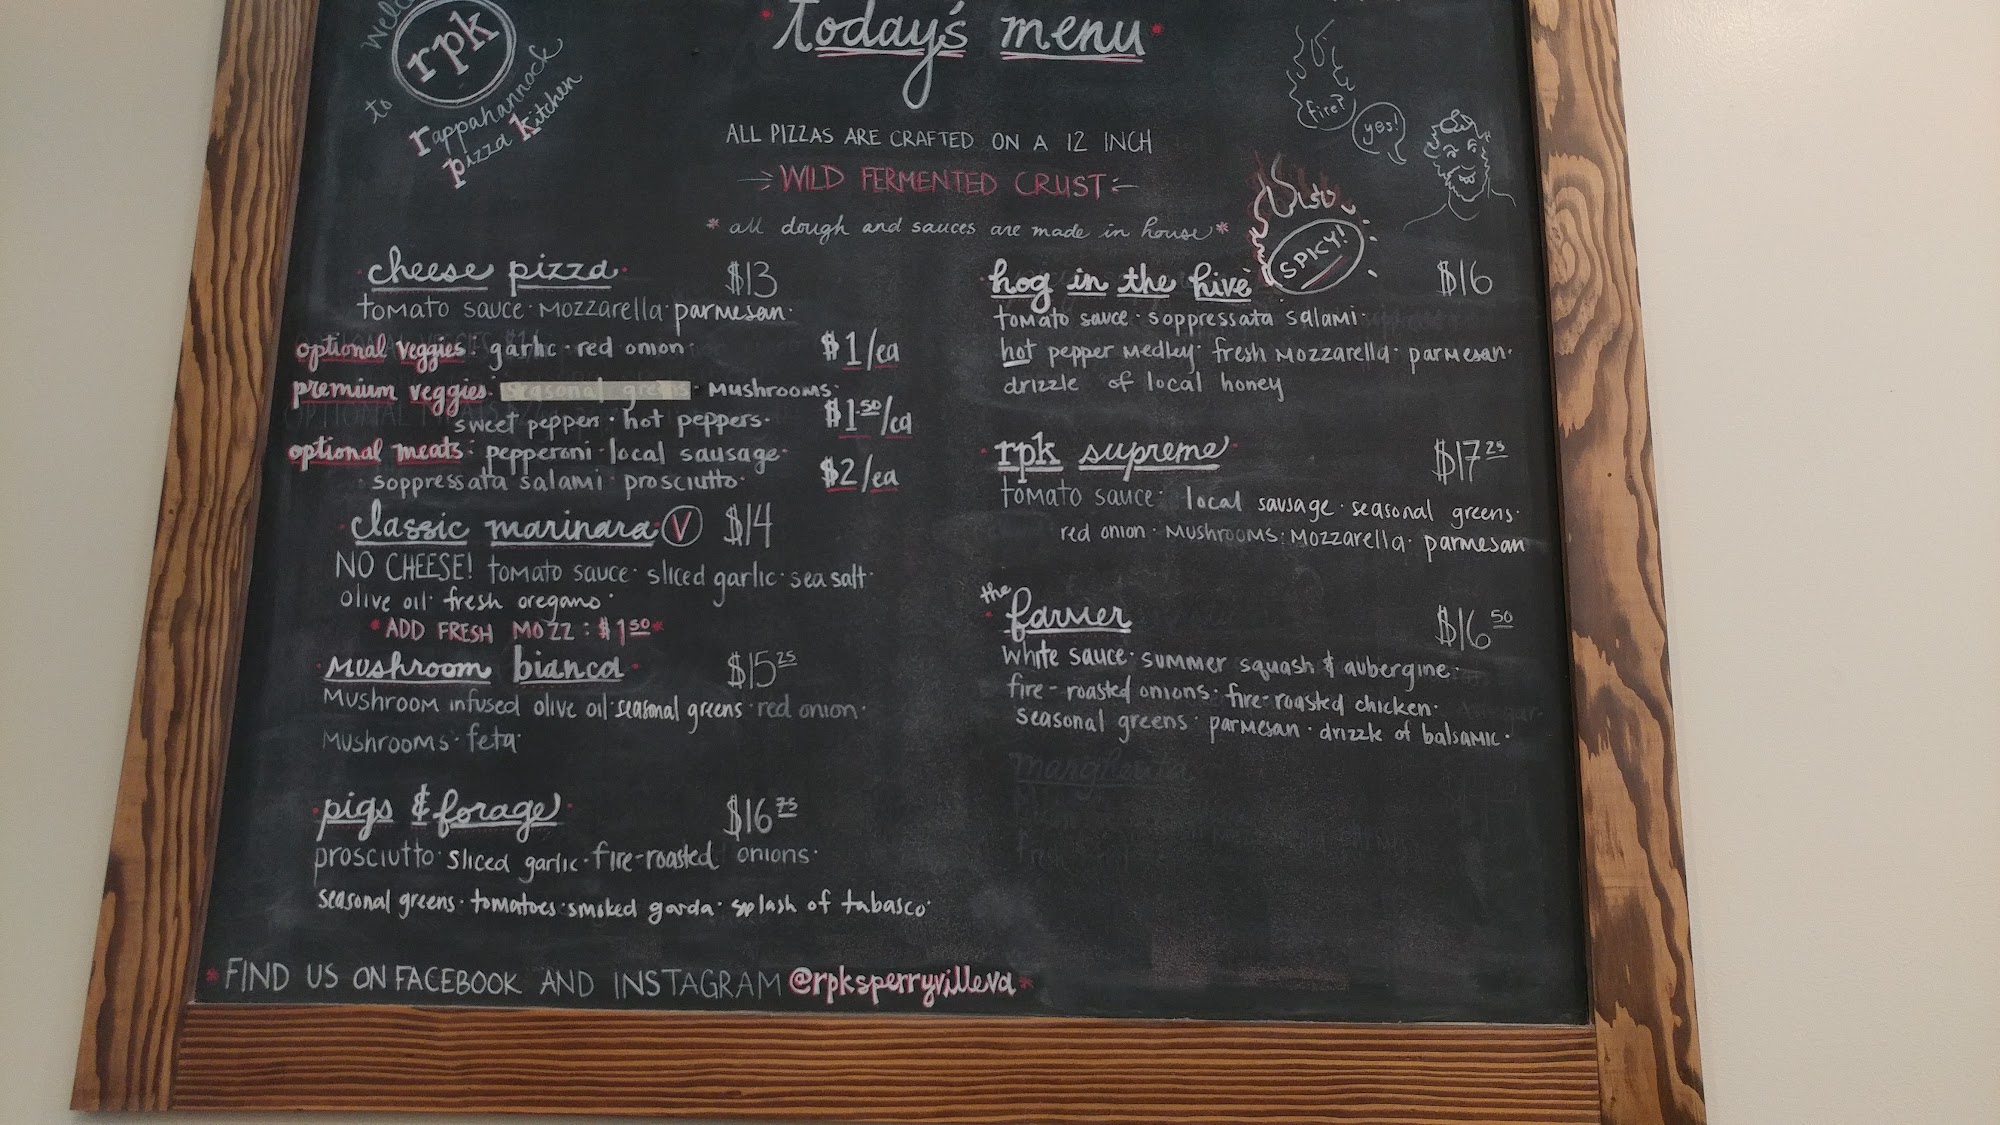 welcome
to
rpk
rappahannock
pizza kitchen
today's menu
fire?
yes!
ALL PIZZAS ARE CRAFTED ON A 12 INCH
WILD FERMENTED CRUST
* all dough and sauces are made in house *
cheese pizza $13
tomato sauce · mozzarella · parmesan ·
optional veggies: garlic · red onion · $1/ea
premium veggies: seasonal greens · mushrooms ·
sweet peppers · hot peppers · $1.50/ea
optional meats: pepperoni · local sausage ·
soppressata salami · prosciutto · $2/ea
classic marinara V $14
NO CHEESE! tomato sauce · sliced garlic · sea salt ·
olive oil · fresh oregano ·
* ADD FRESH MOZZ: $1.50 *
mushroom bianca $15.25
mushroom infused olive oil · seasonal greens · red onion ·
mushrooms · feta ·
pigs & forage $16.75
prosciutto · sliced garlic · fire-roasted onions ·
seasonal greens · tomatoes · smoked garda · splash of tabasco ·
SPICY!
hog in the hive $16
tomato sauce · soppressata salami ·
hot pepper medley · fresh mozzarella · parmesan ·
drizzle of local honey
rpk supreme $17.25
tomato sauce · local sausage · seasonal greens ·
red onion · mushrooms · mozzarella · parmesan
the farmer $16.50
white sauce · summer squash & aubergine ·
fire-roasted onions · fire-roasted chicken ·
seasonal greens · parmesan · drizzle of balsamic ·
margherita
* FIND US ON FACEBOOK AND INSTAGRAM @rpksperryvilleva *